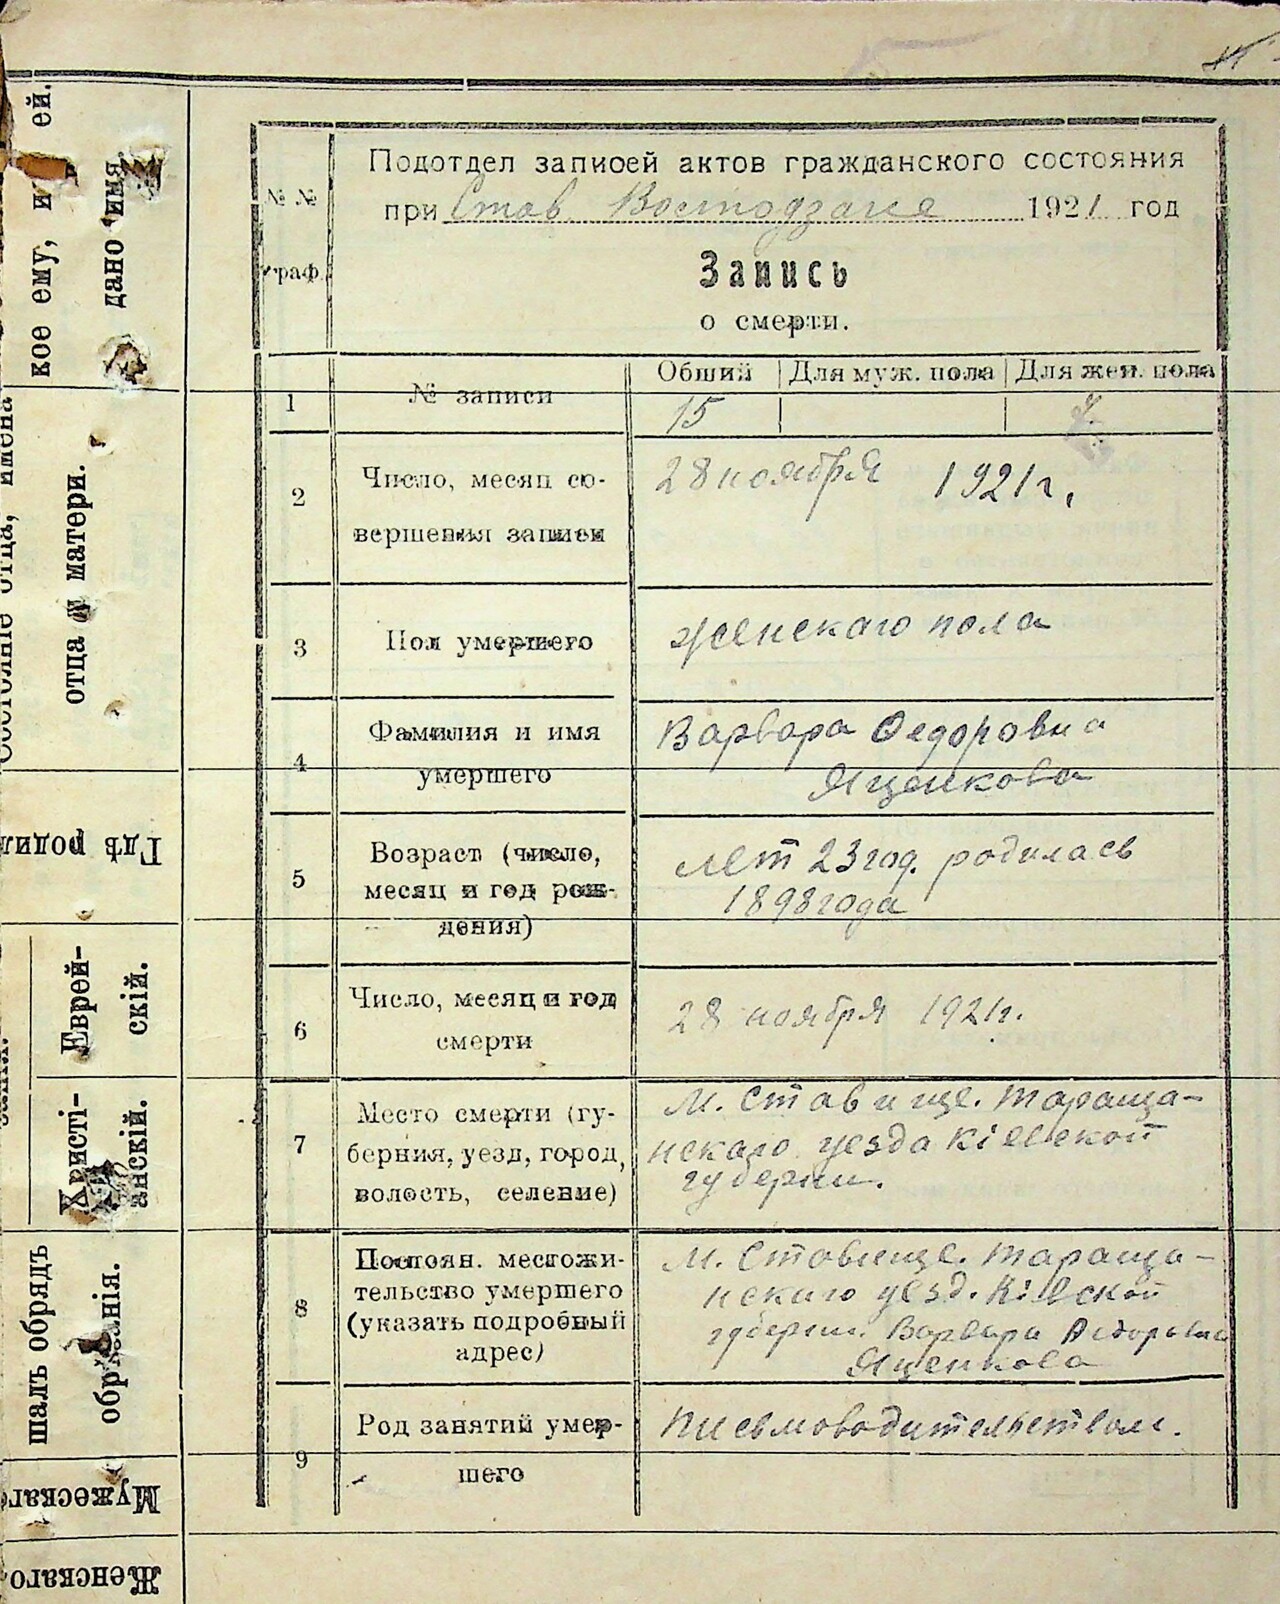 Подотдел записей актов гражданского состояния
при Став. 1921 год
№ №
граф.
Запись
о смерти.
1
№ записи
Общий Для муж. пола Для жен. пола
15
2
Число, месяц со-
вершения записи
28 ноября 1921 г.
3
Пол умершего
женскаго пола
4
Фамилия и имя
умершего
Варвара Федоровна
Яценкова
5
Возраст (число,
месяц и год рож-
дения)
лет 23 год. родилась
1898 года
6
Число, месяц и год
смерти
28 ноября 1921 г.
7
Место смерти (гу-
берния, уезд, город,
волость, селение)
М. Ставище. Тараща-
нскаго уезда Кіевской
губернии.
8
Постоян. местожи-
тельство умершего
(указать подробный
адрес)
М. Ставище. Тараща-
нскаго уезд. Кіевской
губерни. Варвара Федоровна
Яценкова
9
Род занятий умер-
шего
письмоводительством.
кое ему, и ей.
дано имя.
отца, имена
отца и матери.
Гдѣ родил
Еврей-
скій.
Христі-
анскій.
шалъ обрядъ
обрѣзанія.
Мужескаго
Женскаго